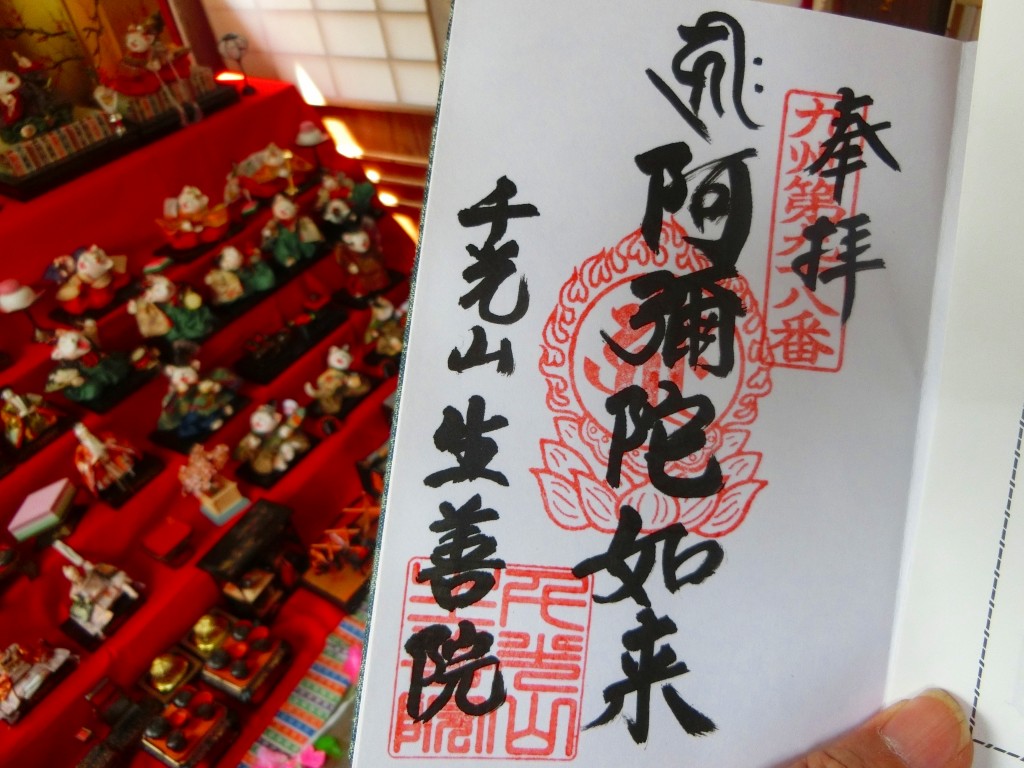 奉拝
九州第九十八番
阿彌陀如来
千光山生善院
千光山
生善院